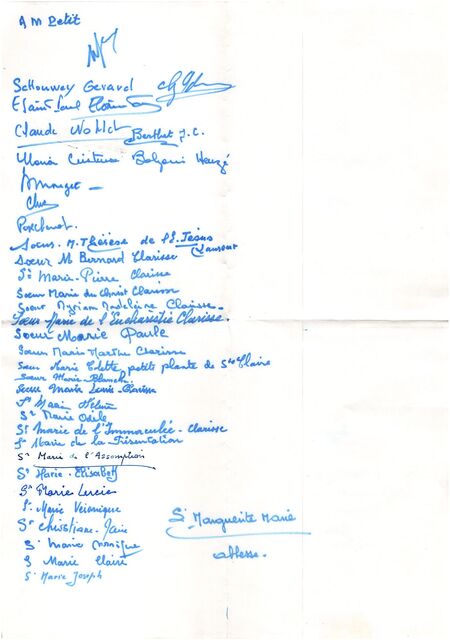 A M Petit
Schouwey Gerard
Claude
Berthet J.C.
Maria
Soeur. M. Thérèse de l'E. Jésus
Laurent
Soeur M Bernard Clarisse
Sr Marie-Pierre Clarisse
Soeur Marie du Christ Clarisse
Soeur Myriam Madeleine Clarisse.
Soeur Marie de l'Eucharistie Clarisse.
Soeur Marie Paule
Soeur Marie Marthe Clarisse
Soeur Marie Colette petite plante de Ste Claire
Soeur Marie-Blanche
Soeur Marie Louis-Clarisse
Sr Marie Hélène
Sr Marie Odile
Sr Marie de l'Immaculée-Clarisse
Sr Marie de la Présentation
Sr Marie de l'Assomption
Sr Marie-Elisabeth
Sr Marie Lucie
Sr Marie Véronique
Sr Christiane-Marie
Sr Marguerite Marie
Sr Marie
abbesse.
S Marie Claire
Sr Marie Joseph